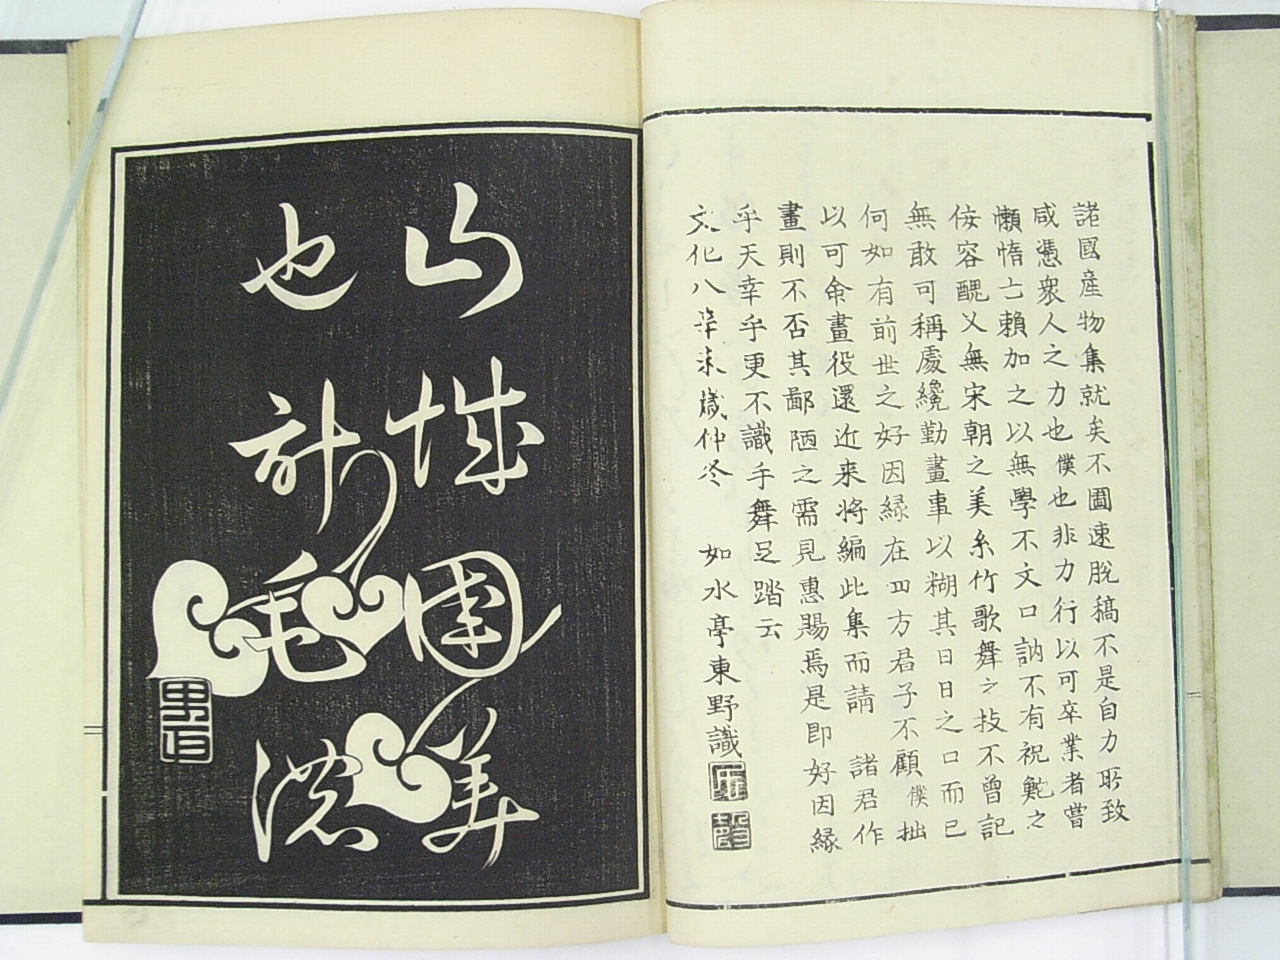 諸國産物集就矣不圖速脫稿不是自力所致
咸憑衆人之力也僕也非力行以可卒業者嘗
懶惰亡賴加之以無學不文口訥不有祝鮀之
侫容醜又無宋朝之美糸竹歌舞之技不曽記
無敢可稱處纔勤畫事以糊其日日之口而已
何如有前世之好因縁在四方君子不顧僕拙
以可命畫役還近来將編此集而請 諸君作
畫則不否其鄙陋之需見惠賜焉是即好因縁
乎天幸乎更不識手舞足踏云
文化八辛未歲仲冬 如水亭東野識
山城国美
也計毛濃